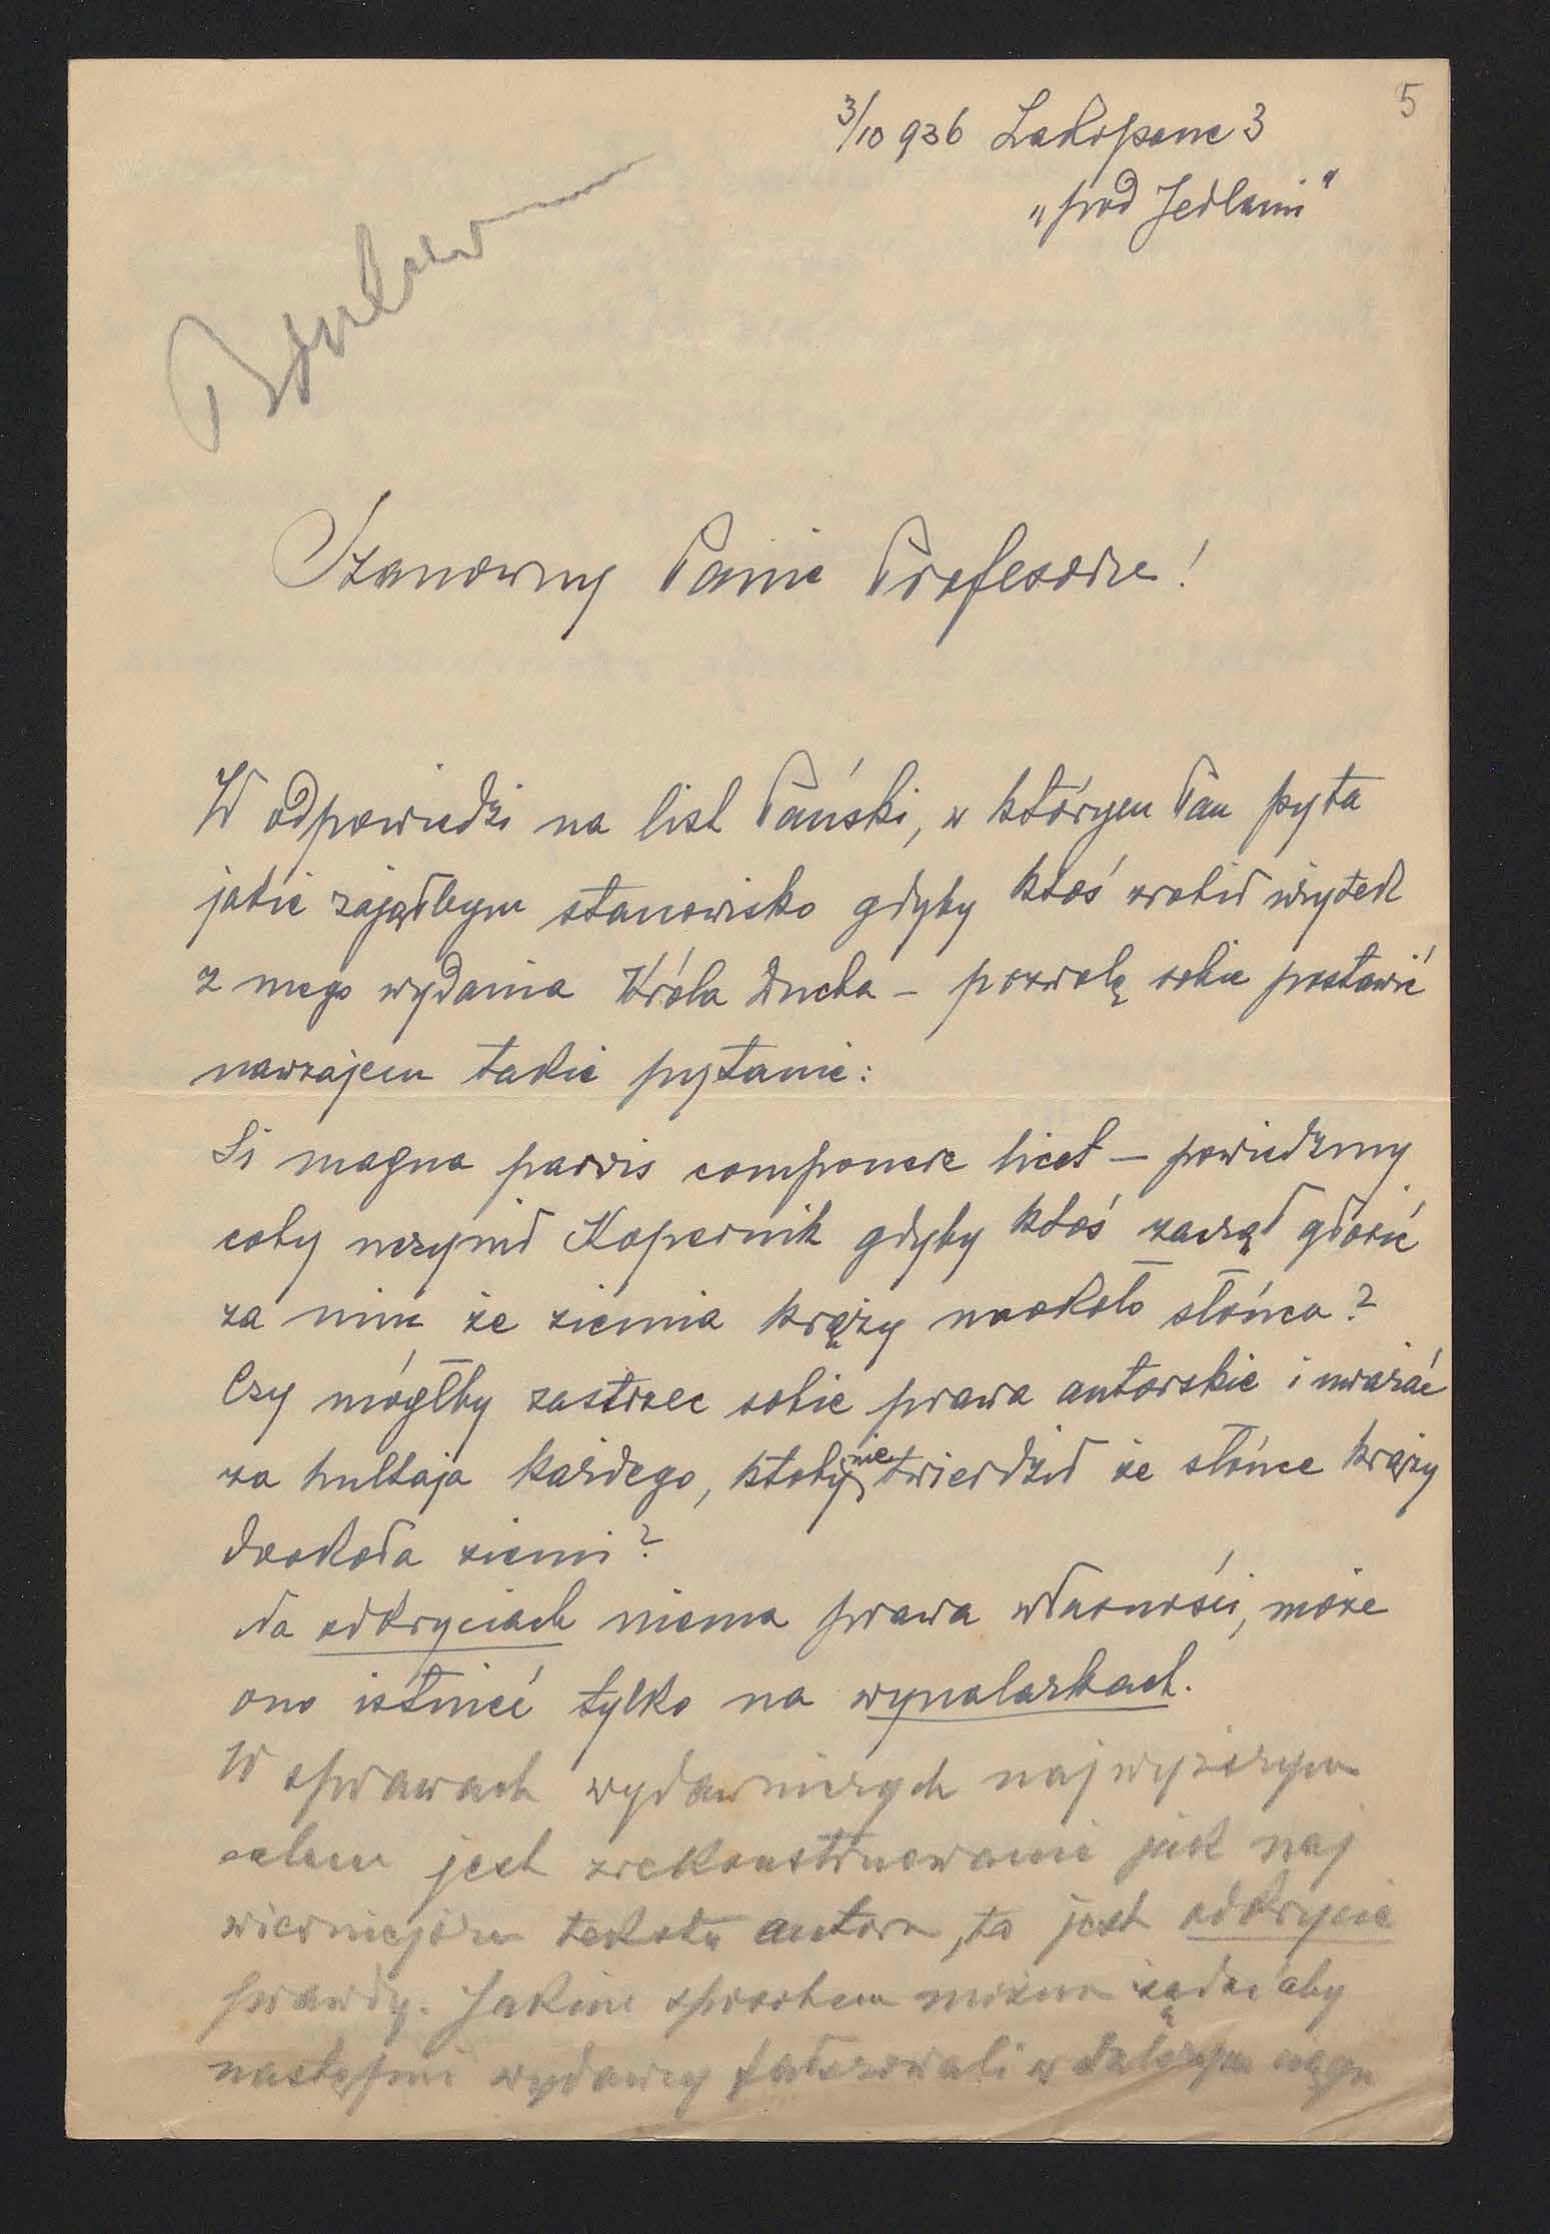 5
3/10 936 Zakopane 3
„pod Jedlami"
Szanowny Panie Profesorze!
W odpowiedzi na list Pański, w którym Pan pyta
jakie zająłbym stanowisko gdyby ktoś zrobił użytek
z mego wydania Króla Ducha – pozwolę sobie postawić
nawzajem takie pytanie:
Si magna parvis componere licet – powiedzmy
coby uczynił Kopernik gdyby ktoś zaczął głosić
za nim że ziemia krąży naokoło słońca?
Czy mógłby zastrzec sobie prawa autorskie i uważać
za hultaja każdego, ktoby nie twierdził że słońce krąży
dookoła ziemi?
Na odkryciach niema prawa własności, może
ono istnieć tylko na wynalazkach.
W sprawach wydawniczych najwyższym
celem jest zrekonstruowanie jak naj
wierniejsze tekstu autora, to jest odkrycie
prawdy. Jakim sposobem można żądać aby
następni wydawcy fałszowali w dalszym ciągu